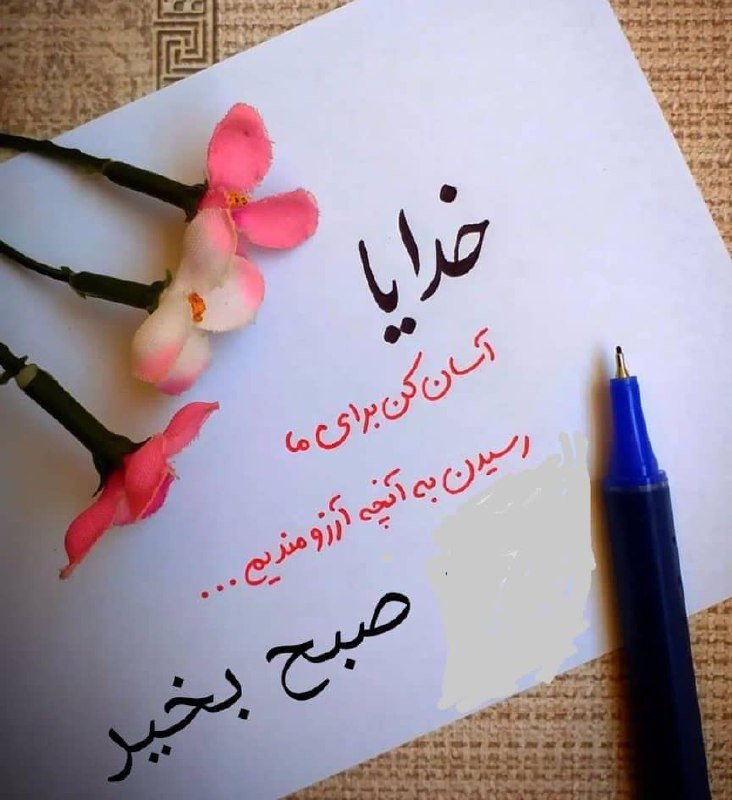 خدایا
آسان کن برای ما
رسیدن به آنچه آرزومندیم...
صبح بخیر